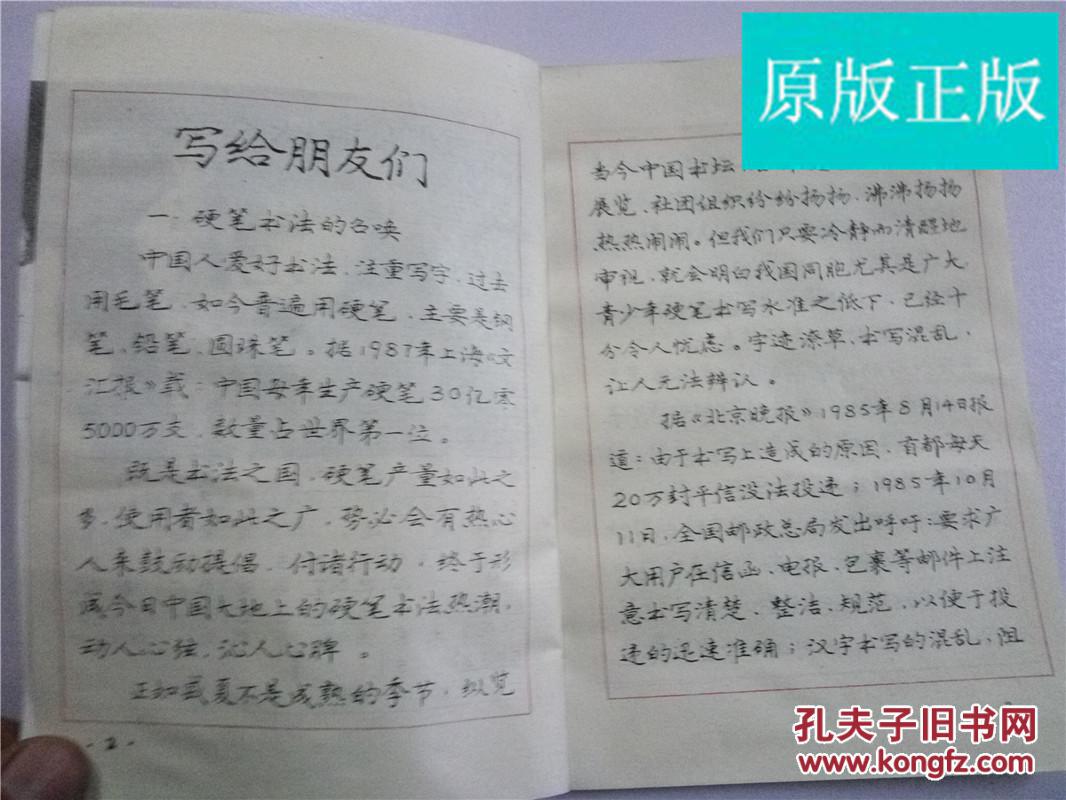 写给朋友们
一、硬笔书法的召唤
中国人爱好书法、注重写字,过去
用毛笔,如今普遍用硬笔,主要是钢
笔、铅笔、圆珠笔。据1987年上海《文
汇报》载:中国每年生产硬笔30亿零
5000万支,数量占世界第一位。
既是书法之国,硬笔产量如此之
多,使用者如此之广,势必会有热心
人来鼓动提倡,付诸行动,终于形
成今日中国大地上的硬笔书法热潮,
动人心弦,沁人心脾。
正如盛夏不是成熟的季节,纵览
-2-
当今中国书坛
展览、社团组织纷纷扬扬、沸沸扬扬
热热闹闹。但我们只要冷静而清醒地
审视,就会明白我国同胞尤其是广大
青少年硬笔书写水准之低下,已经十
分令人忧虑。字迹潦草、书写混乱,
让人无法辨认。
据《北京晚报》1985年8月14日报
道:由于书写上造成的原因,首都每天
20万封平信没法投递;1985年10月
11日,全国邮政总局发出呼吁:要求广
大用户在信函、电报、包裹等邮件上注
意书写清楚、整洁、规范,以便于投
递的迅速准确;汉字书写的混乱,阻
原版正版
孔夫子旧书网
www.kongfz.com